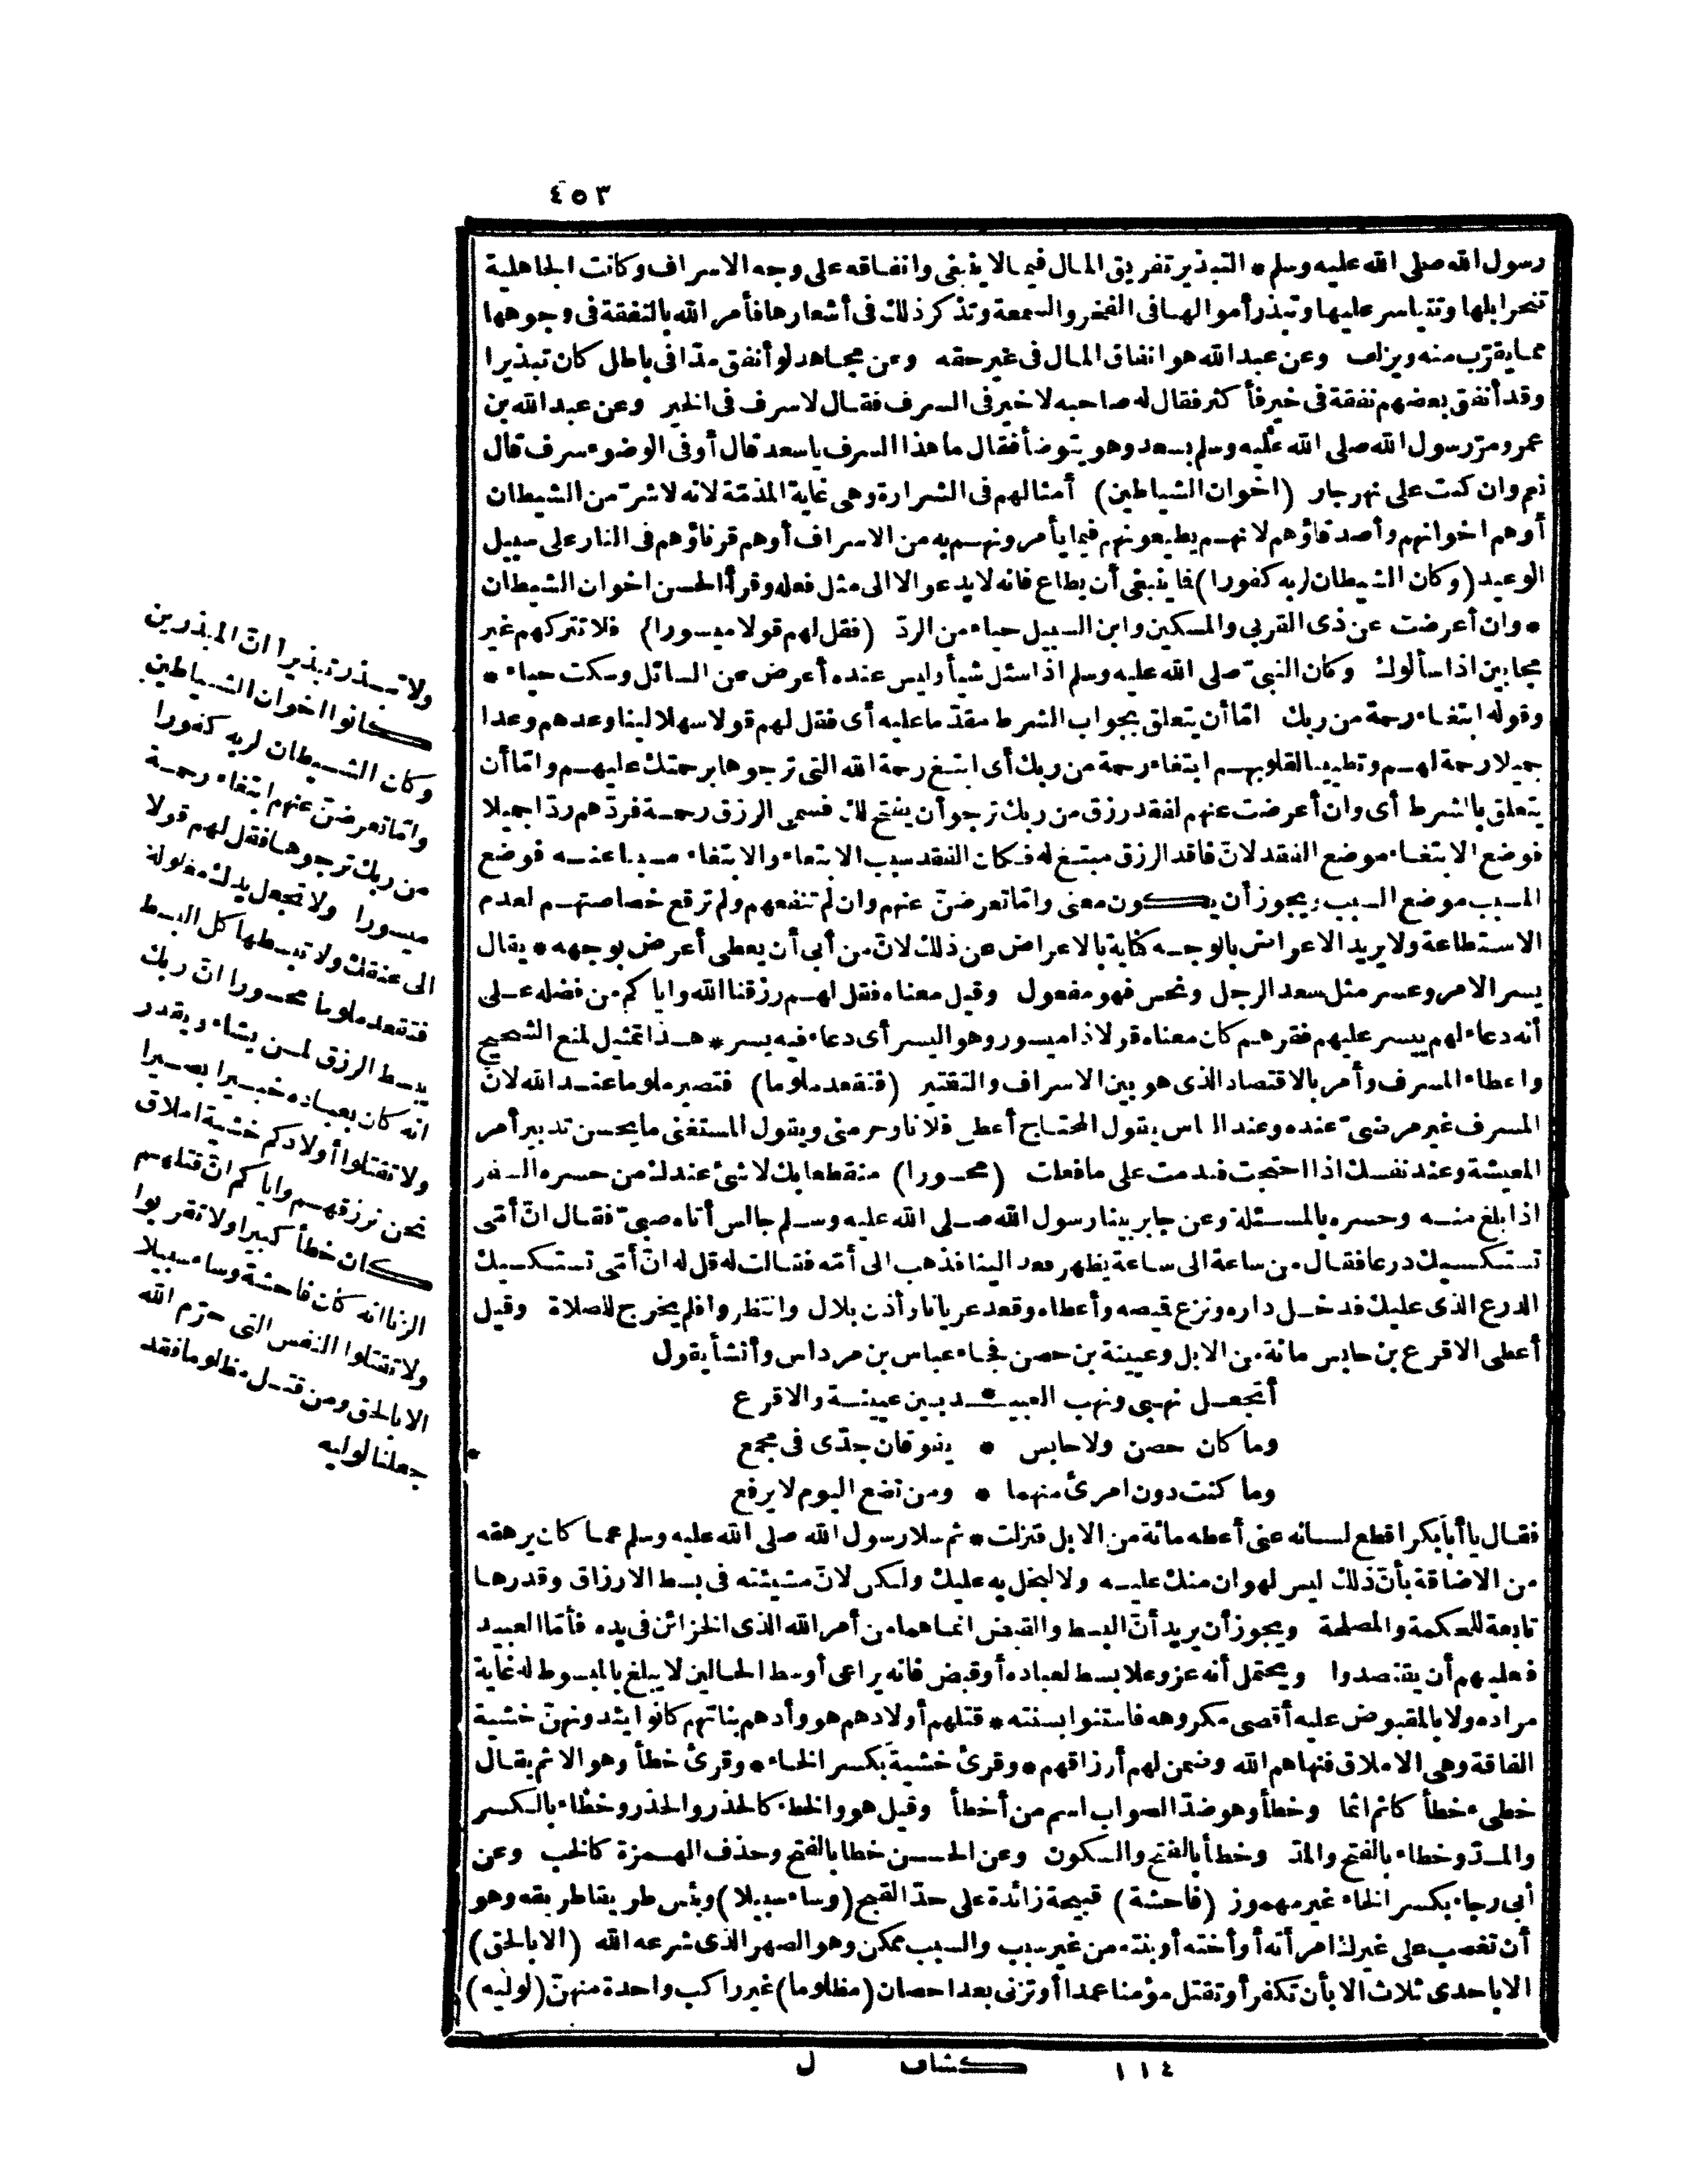 ٤٥٣
رسول الله صلى الله عليه وسلم * التبذير تفريق المال فيما لا ينبغى وانفاقه على وجه الاسراف وكانت الجاهلية
تنحر ابلها وتتياسر عليها وتبذر أموالها فى الفخر والسمعة وتذكر ذلك فى أشعارها فأمر الله بالنفقة فى وجوهها
مما يقرّب منه ويزلف وعن عبد الله هو انفاق المال فى غير حقه وعن مجاهد لو أنفق مدّا فى باطل كان تبذيرا
وقد أنفق بعضهم نفقة فى خير فأكثر فقال له صاحبه لا خير فى السرف فقال لا سرف فى الخير وعن عبد الله بن
عمرو مرّ رسول الله صلى الله عليه وسلم بسعد وهو يتوضأ فقال ما هذا السرف يا سعد قال أو فى الوضوء سرف قال
نعم وان كنت على نهر جار (اخوان الشياطين) أمثالهم فى الشرارة وهى غاية المذمّة لانه لا شرّ من الشيطان
أوهم اخوانهم وأصدقاؤهم لانهم يطيعونهم فيما يأمرونهم به من الاسراف أوهم قرناؤهم فى النار على سبيل
الوعيد (وكان الشيطان لربه كفورا) فما ينبغى أن يطاع فانه لا يدعو الا الى مثل فعله وقرأ الحسن اخوان الشيطان
* وان أعرضت عن ذى القربى والمسكين وابن السبيل حياء من الردّ (فقل لهم قولا ميسورا) فلا تتركهم غير
مجابين اذا سألوك وكان النبىّ صلى الله عليه وسلم اذا سئل شيأ وليس عنده أعرض عن السائل وسكت حياء *
وقوله ابتغاء رحمة من ربك امّا أن يتعلق بجواب الشرط مقدّما عليه أى فقل لهم قولا سهلا لينا وعدهم وعدا
جميلا رحمة لهم وتطييبا لقلوبهم ابتغاء رحمة من ربك أى ابتغ رحمة الله التى ترجوها برحمتك عليهم وامّا أن
يتعلق بالشرط أى وان أعرضت عنهم لفقد رزق من ربك ترجو أن يفتح لك فسمى الرزق رحمة فردّهم ردّا جميلا
فوضع الابتغاء موضع الفقد لانّ فاقد الرزق مبتغ له فكان الفقد سبب الابتغاء والابتغاء مسببا عنه فوضع
المسبب موضع السبب ويجوز أن يكون معنى وامّا تعرضنّ عنهم وان لم تنفعهم ولم ترفع خصاصتهم لعدم
الاستطاعة ولا يريد الاعراض بالوجه كناية بالاعراض عن ذلك لانّ من أبى أن يعطى أعرض بوجهه * يقال
يسر الامر وعسر مثل سعد الرجل ونحس فهو مفعول وقيل معناه فقل لهم رزقنا الله واياكم من فضله على
أنه دعاء لهم ييسر عليهم فقرهم كان معناه قولا ذا ميسور وهو اليسر أى دعاء فيه يسر * هذا تمثيل لمنع الشحيح
واعطاء المسرف وأمر بالاقتصاد الذى هو بين الاسراف والتقتير (فتقعد ملوما) فتصير ملوما عند الله لانّ
المسرف غير مرضىّ عنده وعند الناس يقول المحتاج أعطى فلانا وحرمنى ويقول المستغنى ما يحسن تدبير أمر
المعيشة وعند نفسك اذا احتجت فندمت على ما فعلت (محسورا) منقطعا بك لا شئ عندك من حسره السفر
اذا بلغ منه وحسره بالمسئلة وعن جابر بينا رسول الله صلى الله عليه وسلم جالس أتاه صبىّ فقال انّ أمّى
تستكسيك درعا فقال من ساعة الى ساعة يظهر فعد الينا فذهب الى أمّه فقالت له قل له انّ أمّى تستكسيك
الدرع الذى عليك فدخل داره ونزع قيصه وأعطاه وقعد عريانا وأذن بلال وانتظروا فلم يخرج للصلاة وقيل
أعطى الاقرع بن حابس مائة من الابل وعيينة بن حصن فجاء عباس بن مرداس وأنشأ يقول
أتجعل نهبى ونهب العبيـ * ـد بين عيينة والاقرع
وما كان حصن ولا حابس * يفوقان جدّى فى مجمع
وما كنت دون امرئ منهما * ومن تضع اليوم لا يرفع
فقال يا أبا بكر اقطع لسانه عنى أعطه مائة من الابل فنزلت * ثم سلا رسول الله صلى الله عليه وسلم عما كان يرهقه
من الاضاقة بأنّ ذلك ليس لهوان منك عليه ولا لبخل به عليك ولكن لانّ مشيئته فى بسط الارزاق وقدرها
تابعة للحكمة والمصلحة ويجوز أن يريد أنّ البسط والقبض انما هما من أمر الله الذى الخزائن فى يده فأمّا العبيد
فعليهم أن يقتصدوا ويحتمل أنه عز وعلا بسط لعباده أو قبض فانه يراعى أوسط الحالين لا يبلغ بالمبسوط له غاية
مراده ولا بالمقبوض عليه أقصى مكروهه فاستنوا بسنته * قتلهم أولادهم هو وأدهم بناتهم كانوا يئدونهنّ خشية
الفاقة وهى الاملاق فنهاهم الله وضمن لهم أرزاقهم * وقرئ خشية بكسر الخاء * وقرئ خطأ وهو الاثم يقال
خطئ خطأ كاثم اثما وخطأ وهو ضدّ الصواب اسم من أخطأ وقيل هو والخطء كالحذر والحذر وخطاء بالكسر
والمدّ وخطاء بالفتح والمدّ وخطأ بالفتح والسكون وعن الحسن خطا بالفتح وحذف الهمزة كالخب وعن
أبى رجاء بكسر الخاء غير مهموز (فاحشة) قبيحة زائدة على حدّ القبح (وساء سبيلا) وبئس طريقا طريقه وهو
أن تغصب على غيرك امرأته أو أخته أو بنته من غير سبب والسبب ممكن وهو الصهر الذى شرعه الله (الا بالحق)
الا باحدى ثلاث الا بأن تكفر أو تقتل مؤمنا عمدا أو تزنى بعد احصان (مظلوما) غير راكب واحدة منهنّ (لوليه)
ولا تبذر تبذيرا انّ المبذرين
كانوا اخوان الشياطين
وكان الشيطان لربه كفورا
وامّا تعرضنّ عنهم ابتغاء رحمة
من ربك ترجوها فقل لهم قولا
ميسورا ولا تجعل يدك مغلولة
الى عنقك ولا تبسطها كل البسط
فتقعد ملوما محسورا انّ ربك
يبسط الرزق لمن يشاء ويقدر
انه كان بعباده خبيرا بصيرا
ولا تقتلوا أولادكم خشية املاق
نحن نرزقهم واياكم انّ قتلهم
كان خطأ كبيرا ولا تقربوا
الزنا انه كان فاحشة وساء سبيلا
ولا تقتلوا النفس التى حرّم الله
الا بالحق ومن قتل مظلوما فقد
جعلنا لوليه
*
١١٤ كشاف ل